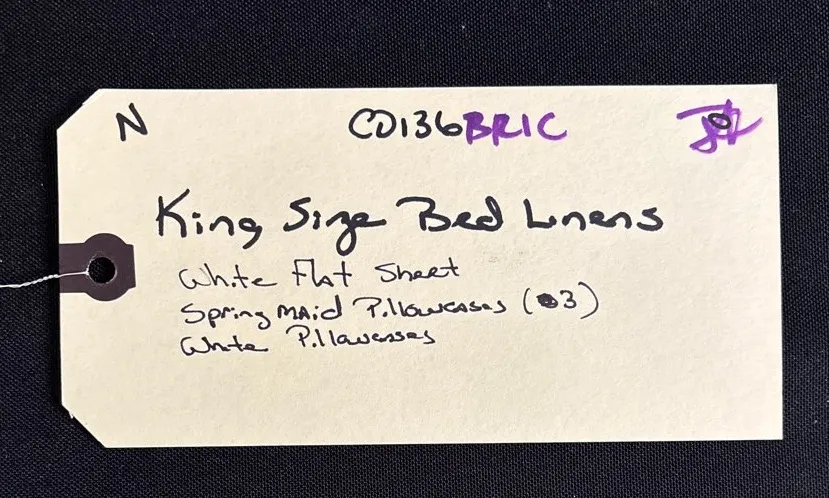 N CD136BRIC
King Size Bed Linens
White Flat Sheet
Spring Maid Pillowcases (3)
White Pillowcases